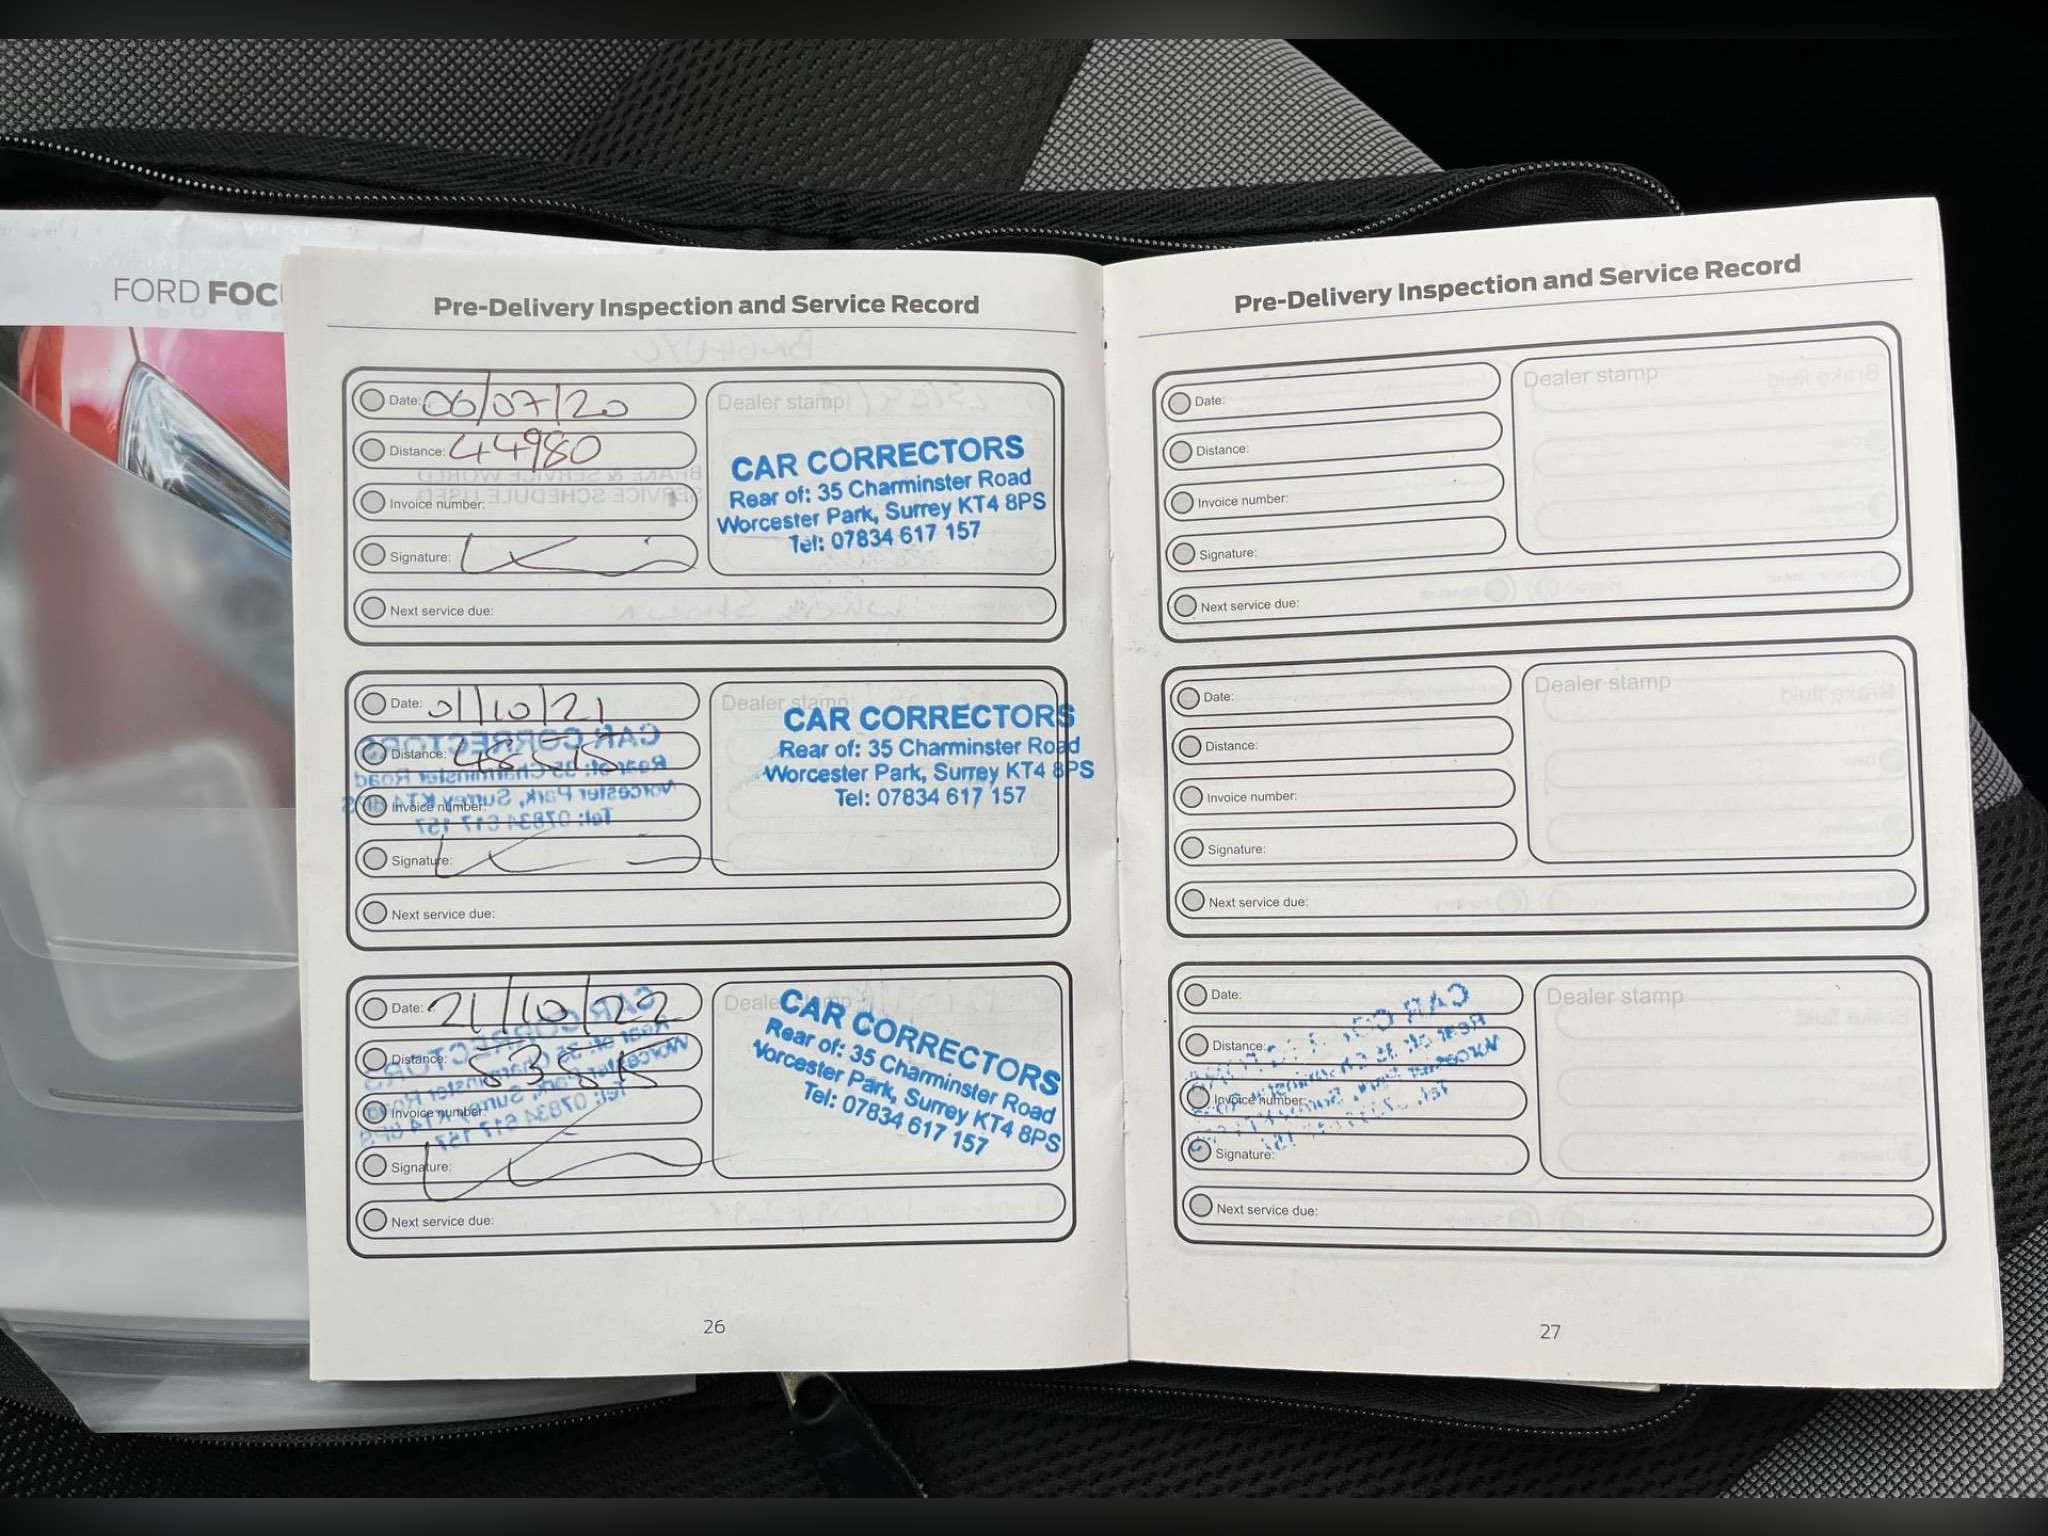 FORD FOC
Pre-Delivery Inspection and Service Record
Date: 06/07/20
Distance: 44980
Invoice number:
Signature:
Next service due:
Dealer stamp
CAR CORRECTORS
Rear of: 35 Charminster Road
Worcester Park, Surrey KT4 8PS
Tel: 07834 617 157
Date: 01/10/21
Distance:
Invoice number:
Signature:
Next service due:
Dealer stamp
CAR CORRECTORS
Rear of: 35 Charminster Road
Worcester Park, Surrey KT4 8PS
Tel: 07834 617 157
Date: 21/10/22
Distance:
Invoice number:
Signature:
Next service due:
Dealer stamp
CAR CORRECTORS
Rear of: 35 Charminster Road
Worcester Park, Surrey KT4 8PS
Tel: 07834 617 157
26
Pre-Delivery Inspection and Service Record
Date:
Distance:
Invoice number:
Signature:
Next service due:
Dealer stamp
Date:
Distance:
Invoice number:
Signature:
Next service due:
Dealer stamp
Date:
Distance:
Invoice number:
Signature:
Next service due:
Dealer stamp
27